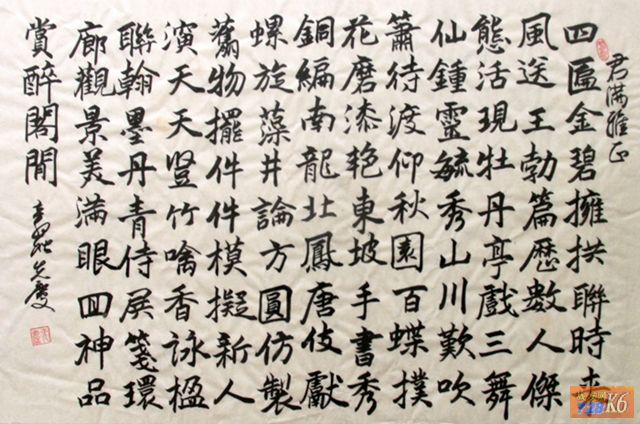 君滿雅正
四匾金碧擁拱聯時来
風送王勃篇歷數人傑
態活現牡丹亭戲三舞
仙鍾靈毓秀山川歎吹
簫待渡仰秋園百蝶撲
花磨漆艳東坡手書秀
銅編南龍北鳳唐伎獻
螺旋藻井論方圓仿製
舊物擺件件模擬新人
濱天天豎竹噙香詠楹
聯翰墨丹青侍屏箋環
廊觀景美滿眼四神品
賞醉閣間
K6